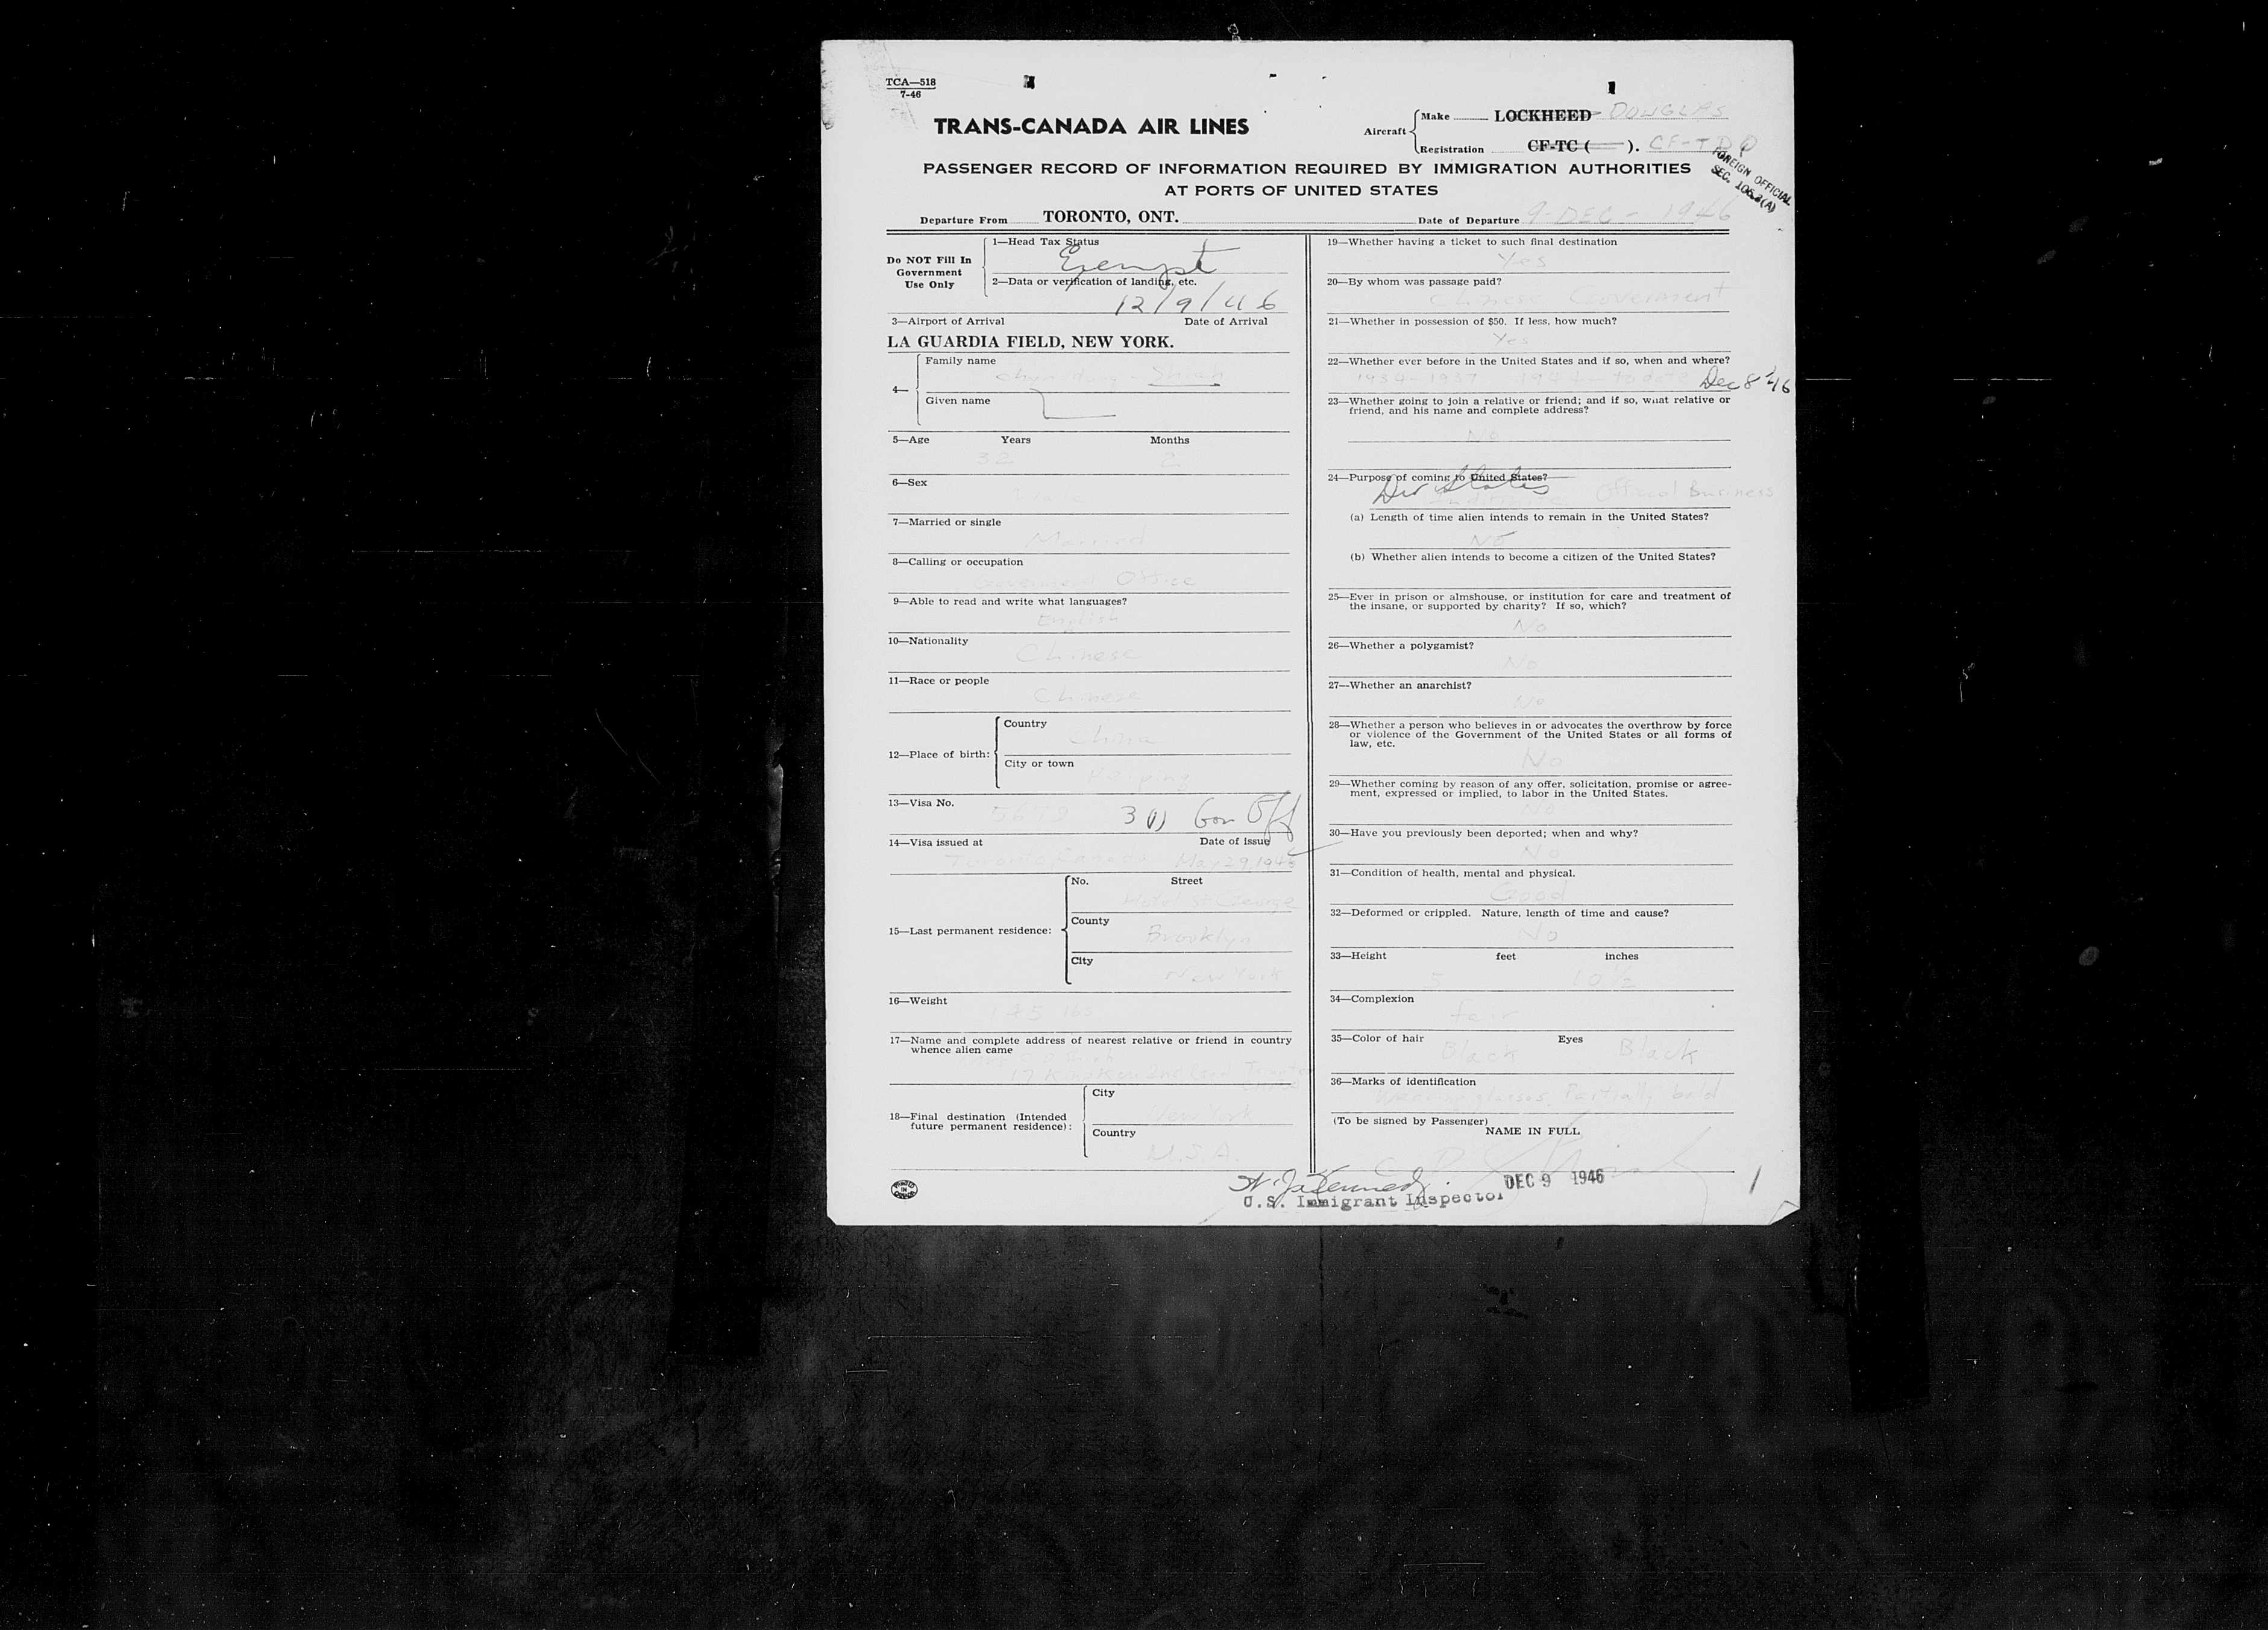 TCA—518
7-46
TRANS-CANADA AIR LINES
Aircraft
Make LOCKHEED DOUGLAS
Registration CF-TC ( ). CF-TD
FOREIGN OFFICIAL
SEC. 105.3(A)
PASSENGER RECORD OF INFORMATION REQUIRED BY IMMIGRATION AUTHORITIES
AT PORTS OF UNITED STATES
Departure From TORONTO, ONT.
Date of Departure 9-DEC-1946
Do NOT Fill In
Government
Use Only
1—Head Tax Status
Exempt
2—Data or verification of landing, etc.
12/9/46
3—Airport of Arrival Date of Arrival
LA GUARDIA FIELD, NEW YORK.
4—
Family name
Shwan
Given name
5—Age Years Months
32 2
6—Sex
7—Married or single
Married
8—Calling or occupation
Office
9—Able to read and write what languages?
English
10—Nationality
Chinese
11—Race or people
Chinese
12—Place of birth:
Country
China
City or town
Peiping
13—Visa No.
3(1) Gov Off
14—Visa issued at Date of issue
Toronto Canada May 29, 194
15—Last permanent residence:
No. Street
Hotel St. George
County
Brooklyn
City
New York
16—Weight
145 lbs
17—Name and complete address of nearest relative or friend in country
whence alien came
18—Final destination (Intended
future permanent residence):
City
New York
Country
U.S.A.
19—Whether having a ticket to such final destination
Yes
20—By whom was passage paid?
Chinese Goverment
21—Whether in possession of $50. If less, how much?
Yes
22—Whether ever before in the United States and if so, when and where?
1934-1937 1944 - to date Dec 8 '46
23—Whether going to join a relative or friend; and if so, what relative or
friend, and his name and complete address?
No
24—Purpose of coming to United States?
Official Business
(a) Length of time alien intends to remain in the United States?
No
(b) Whether alien intends to become a citizen of the United States?
25—Ever in prison or almshouse, or institution for care and treatment of
the insane, or supported by charity? If so, which?
No
26—Whether a polygamist?
No
27—Whether an anarchist?
No
28—Whether a person who believes in or advocates the overthrow by force
or violence of the Government of the United States or all forms of
law, etc.
No
29—Whether coming by reason of any offer, solicitation, promise or agree-
ment, expressed or implied, to labor in the United States.
No
30—Have you previously been deported; when and why?
No
31—Condition of health, mental and physical.
Good
32—Deformed or crippled. Nature, length of time and cause?
No
33—Height feet inches
5 10 1/2
34—Complexion
fair
35—Color of hair Eyes
Black Black
36—Marks of identification
Wearing glasses, Partially bald
(To be signed by Passenger)
NAME IN FULL
DEC 9 1946
U.S. Immigrant Inspector